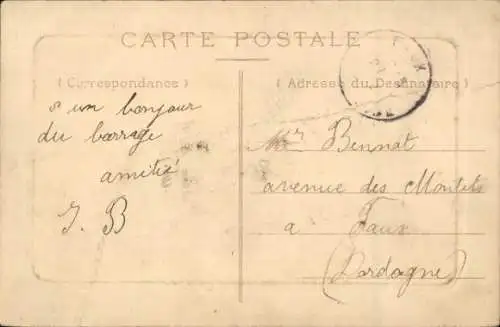 CARTE POSTALE
(Correspondance)
un bonjour
du barrage
amitié
J. B
(Adresse du Destinataire)
Mr Bennat
avenue des
a Faux
(Dordogne)